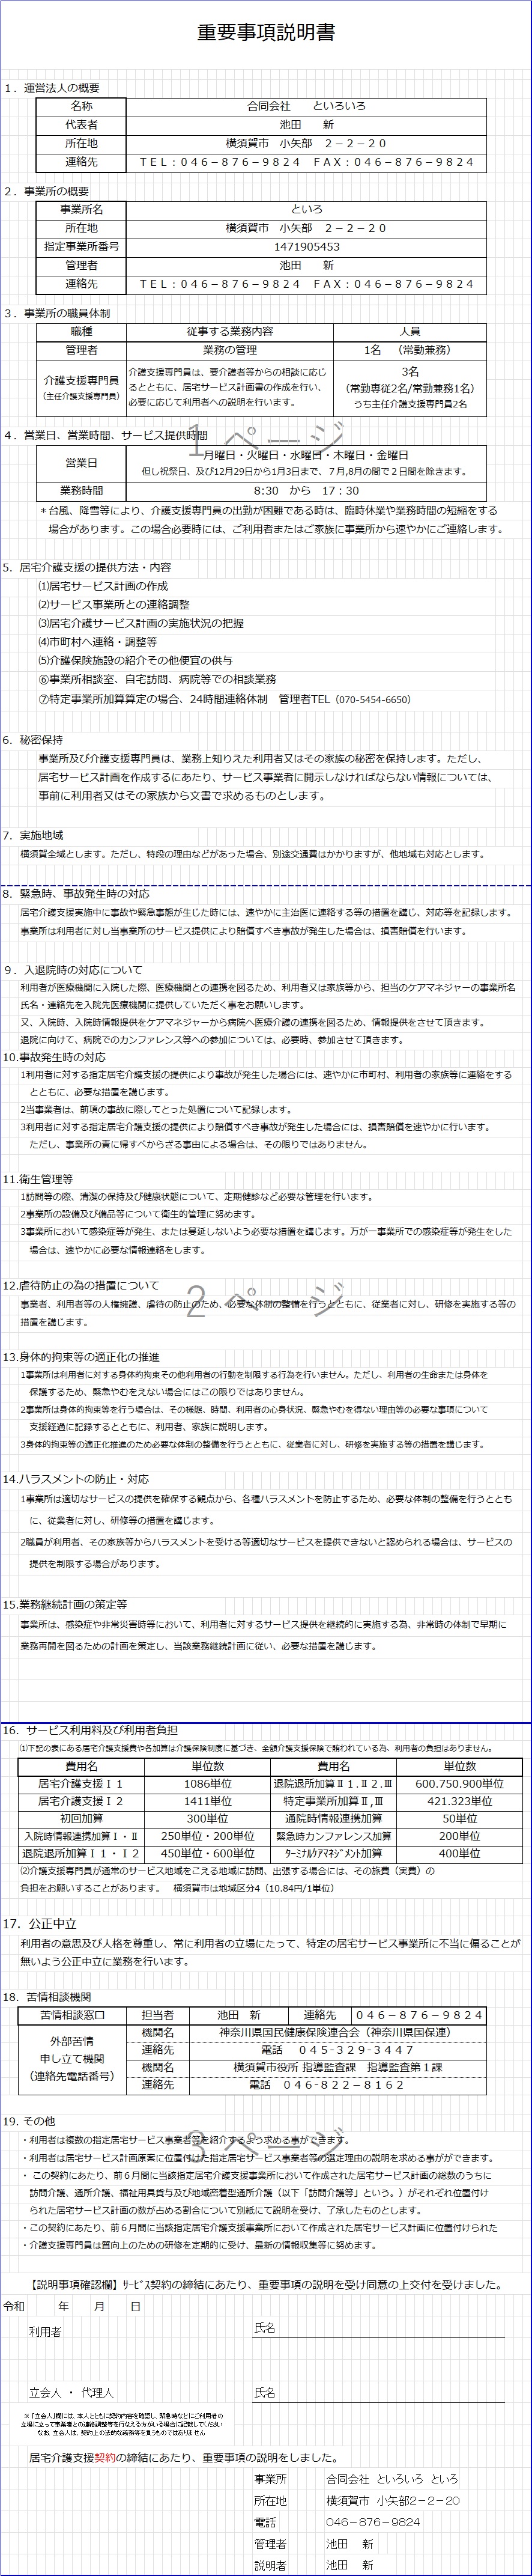 重要事項説明書
１．運営法人の概要
名称 合同会社　といろいろ
代表者 池田　新
所在地 横須賀市　小矢部　２－２－２０
連絡先 ＴＥＬ：０４６－８７６－９８２４　ＦＡＸ：０４６－８７６－９８２４
２．事業所の概要
事業所名 といろ
所在地 横須賀市　小矢部　２－２－２０
指定事業所番号 1471905453
管理者 池田　新
連絡先 ＴＥＬ：０４６－８７６－９８２４　ＦＡＸ：０４６－８７６－９８２４
３．事業所の職員体制
職種 従事する業務内容 人員
管理者 業務の管理 1名　（常勤兼務）
介護支援専門員
（主任介護支援専門員）
介護支援専門員は、要介護者等からの相談に応じ
るとともに、居宅サービス計画書の作成を行い、
必要に応じて利用者への説明を行います。
3名
（常勤専従2名/常勤兼務1名）
うち主任介護支援専門員2名
４．営業日、営業時間、サービス提供時間
1 ページ
営業日 月曜日・火曜日・水曜日・木曜日・金曜日
但し祝祭日、及び12月29日から1月3日まで、７月,8月の間で２日間を除きます。
業務時間 8:30　から　17：30
＊台風、降雪等により、介護支援専門員の出勤が困難である時は、臨時休業や業務時間の短縮をする
場合があります。この場合必要時には、ご利用者またはご家族に事業所から速やかにご連絡します。
5．居宅介護支援の提供方法・内容
⑴居宅サービス計画の作成
⑵サービス事業所との連絡調整
⑶居宅介護サービス計画の実施状況の把握
⑷市町村へ連絡・調整等
⑸介護保険施設の紹介その他便宜の供与
⑥事業所相談室、自宅訪問、病院等での相談業務
⑦特定事業所加算算定の場合、24時間連絡体制　管理者TEL（070-5454-6650）
6．秘密保持
事業所及び介護支援専門員は、業務上知りえた利用者又はその家族の秘密を保持します。ただし、
居宅サービス計画を作成するにあたり、サービス事業者に開示しなければならない情報については、
事前に利用者又はその家族から文書で求めるものとします。
7．実施地域
横須賀全域とします。ただし、特段の理由などがあった場合、別途交通費はかかりますが、他地域も対応とします。
8．緊急時、事故発生時の対応
居宅介護支援実施中に事故や緊急事態が生じた時には、速やかに主治医に連絡する等の措置を講じ、対応等を記録します。
事業所は利用者に対し当事業所のサービス提供により賠償すべき事故が発生した場合は、損害賠償を行います。
９．入退院時の対応について
利用者が医療機関に入院した際、医療機関との連携を図るため、利用者又は家族等から、担当のケアマネジャーの事業所名
氏名・連絡先を入院先医療機関に提供していただく事をお願いします。
又、入院時、入院時情報提供をケアマネジャーから病院へ医療介護の連携を図るため、情報提供をさせて頂きます。
退院に向けて、病院でのカンファレンス等への参加については、必要時、参加させて頂きます。
10.事故発生時の対応
1利用者に対する指定居宅介護支援の提供により事故が発生した場合には、速やかに市町村、利用者の家族等に連絡をする
とともに、必要な措置を講じます。
2当事業者は、前項の事故に際してとった処置について記録します。
3利用者に対する指定居宅介護支援の提供により賠償すべき事故が発生した場合には、損害賠償を速やかに行います。
ただし、事業所の責に帰すべからざる事由による場合は、その限りではありません。
11.衛生管理等
1訪問等の際、清潔の保持及び健康状態について、定期健診など必要な管理を行います。
2事業所の設備及び備品等について衛生的管理に努めます。
3事業所において感染症等が発生、または蔓延しないよう必要な措置を講じます。万が一事業所での感染症等が発生をした
場合は、速やかに必要な情報連絡をします。
12.虐待防止の為の措置について
2 ページ
事業者、利用者等の人権擁護、虐待の防止のため、必要な体制の整備を行うとともに、従業者に対し、研修を実施する等の
措置を講じます。
13.身体的拘束等の適正化の推進
1事業所は利用者に対する身体的拘束その他利用者の行動を制限する行為を行いません。ただし、利用者の生命または身体を
保護するため、緊急やむをえない場合にはこの限りではありません。
2事業所は身体的拘束等を行う場合は、その様態、時間、利用者の心身状況、緊急やむを得ない理由等の必要な事項について
支援経過に記録するとともに、利用者、家族に説明します。
3身体的拘束等の適正化推進のため必要な体制の整備を行うとともに、従業者に対し、研修を実施する等の措置を講じます。
14.ハラスメントの防止・対応
1事業所は適切なサービスの提供を確保する観点から、各種ハラスメントを防止するため、必要な体制の整備を行うととも
に、従業者に対し、研修等の措置を講じます。
2職員が利用者、その家族等からハラスメントを受ける等適切なサービスを提供できないと認められる場合は、サービスの
提供を制限する場合があります。
15.業務継続計画の策定等
事業所は、感染症や非常災害時等において、利用者に対するサービス提供を継続的に実施する為、非常時の体制で早期に
業務再開を図るための計画を策定し、当該業務継続計画に従い、必要な措置を講じます。
16．サービス利用料及び利用者負担
⑴下記の表にある居宅介護支援費や各加算は介護保険制度に基づき、全額介護支援保険で賄われている為、利用者の負担はありません。
費用名 単位数 費用名 単位数
居宅介護支援Ⅰ1 1086単位 退院退所加算Ⅱ１.Ⅱ２.Ⅲ 600.750.900単位
居宅介護支援Ⅰ2 1411単位 特定事業所加算Ⅱ,Ⅲ 421.323単位
初回加算 300単位 通院時情報連携加算 50単位
入院時情報連携加算Ⅰ・Ⅱ 250単位・200単位 緊急時カンファレンス加算 200単位
退院退所加算Ⅰ１・Ⅰ２ 450単位・600単位 ﾀｰﾐﾅﾙｹｱﾏﾈｼﾞﾒﾝﾄ加算 400単位
⑵介護支援専門員が通常のサービス地域をこえる地域に訪問、出張する場合には、その旅費（実費）の
負担をお願いすることがあります。　横須賀市は地域区分4（10.84円/1単位）
17．公正中立
利用者の意思及び人格を尊重し、常に利用者の立場にたって、特定の居宅サービス事業所に不当に偏ることが
無いよう公正中立に業務を行います。
18．苦情相談機関
苦情相談窓口 担当者 池田　新 連絡先 ０４６－８７６－９８２４
外部苦情
申し立て機関
（連絡先電話番号）
機関名 神奈川県国民健康保険連合会（神奈川県国保連）
連絡先 電話　０４５-３２９-３４４７
機関名 横須賀市役所 指導監査課　指導監査第１課
連絡先 電話　０４６-８２２－８１６２
19．その他
3 ページ
・利用者は複数の指定居宅サービス事業者等を紹介するよう求める事ができます。
・利用者は居宅サービス計画原案に位置付けた指定居宅サービス事業者等の選定理由の説明を求める事ができます。
・ この契約にあたり、前６月間に当該指定居宅介護支援事業所において作成された居宅サービス計画の総数のうちに
訪問介護、通所介護、福祉用具貸与及び地域密着型通所介護（以下「訪問介護等」という。）がそれぞれ位置付け
られた居宅サービス計画の数が占める割合について別紙にて説明を受け、了承したものとします。
・この契約にあたり、前６月間に当該指定居宅介護支援事業所において作成された居宅サービス計画に位置付けられた
・介護支援専門員は質向上のための研修を定期的に受け、最新の情報収集等に努めます。
【説明事項確認欄】ｻｰﾋﾞｽ契約の締結にあたり、重要事項の説明を受け同意の上交付を受けました。
令和　　年　　月　　日
利用者 氏名
立会人 ・ 代理人 氏名
※「立会人」欄には、本人とともに契約内容を確認し、緊急時などにご利用者の
立場に立って事業者との連絡調整等を行なえる方がいる場合に記載してください
なお、立会人は、契約上の法的な義務等を負うものではありません
居宅介護支援契約の締結にあたり、重要事項の説明をしました。
事業所 合同会社 といろいろ といろ
所在地 横須賀市 小矢部2－2－20
電話 046－876－9824
管理者 池田　新
説明者 池田　新